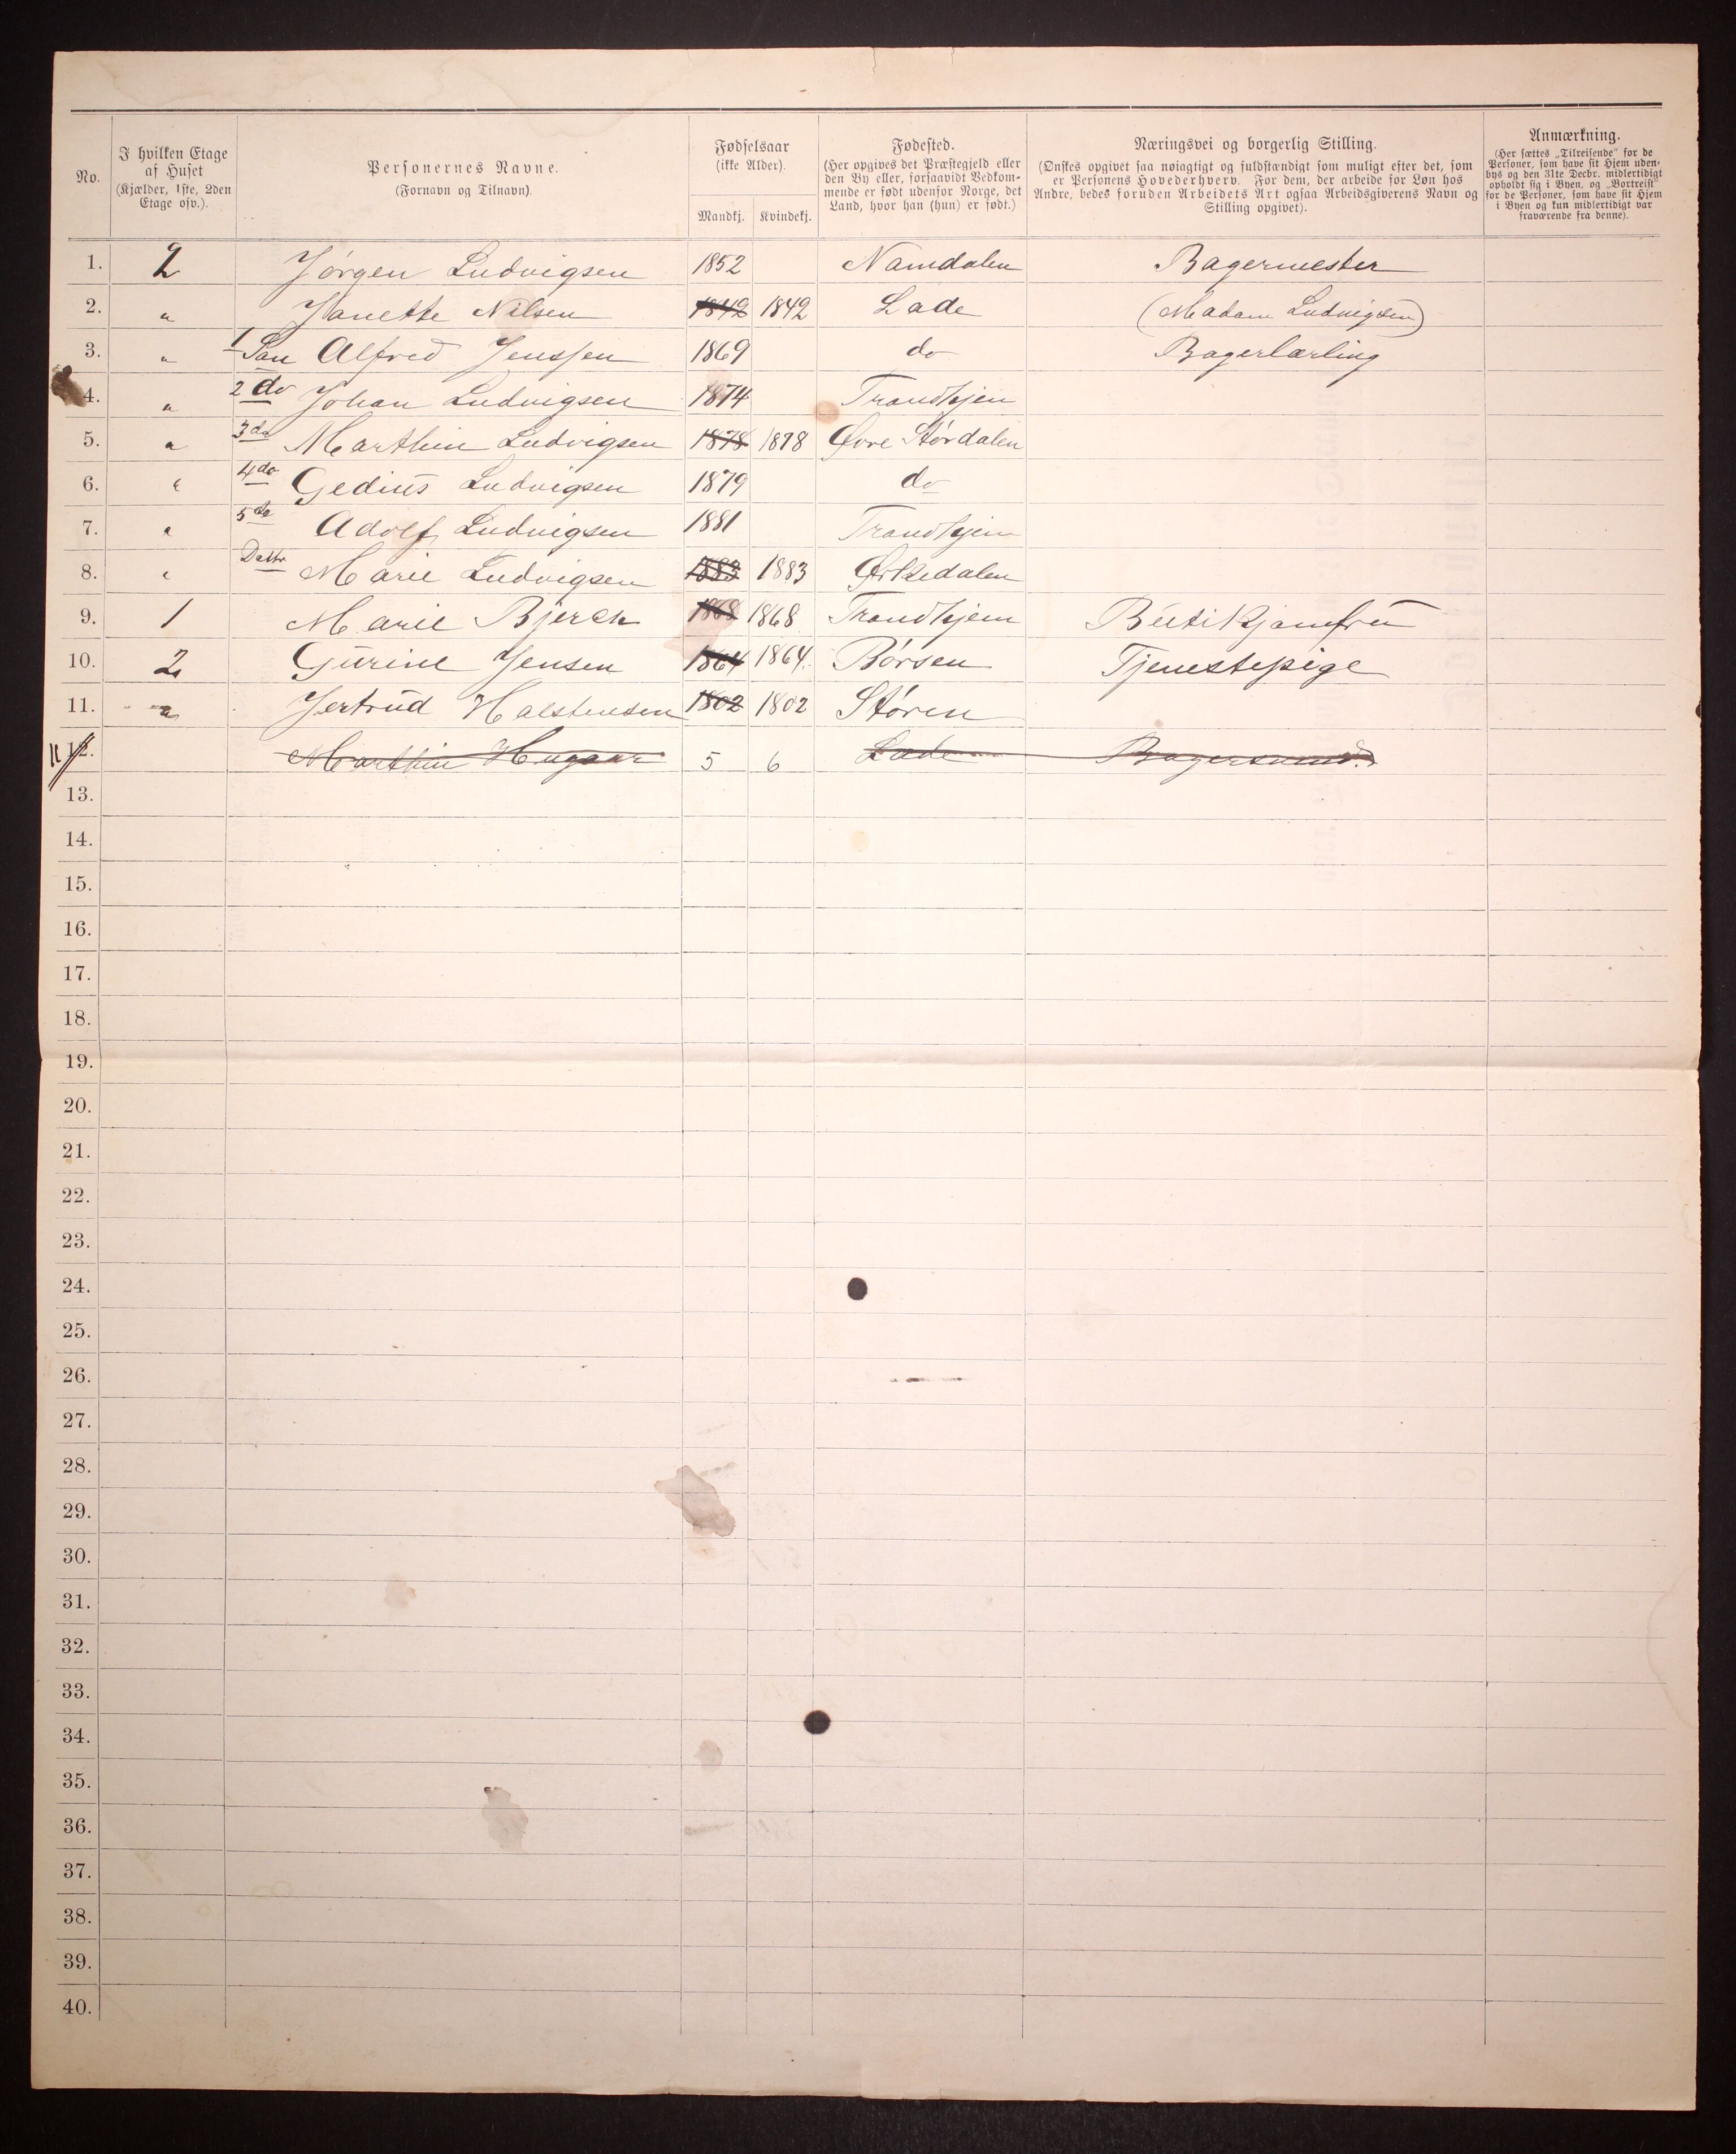 No.
I hvilken Etage af Huset (Kjælder, 1ste, 2den Etage osv.).
Personernes Navne. (Fornavn og Tilnavn).
Fødselsaar (ikke Alder).
Mandkj. Kvindekj.
Fødested. (Her opgives det Præstegjeld eller den By eller, forsaavidt Vedkommende er født udenfor Norge, det Land, hvor han (hun) er født.)
Næringsvei og borgerlig Stilling. (Ønskes opgivet saa nøiagtigt og fuldstændigt som muligt efter det, som er Personens Hovederhverv. For dem, der arbeide for Løn hos Andre, bedes foruden Arbeidets Art ogsaa Arbeidsgiverens Navn og Stilling opgivet).
Anmærkning. (Her sættes „Tilreisende" for de Personer, som have sit Hjem udenbys og den 31te Decbr. midlertidigt opholdt sig i Byen, og „Bortreist" for de Personer, som have sit Hjem i Byen og kun midlertidigt var fraværende fra denne).
1. 2 Jørgen Ludvigsen 1852 Namdalen Bagermester
2. " Janette Nilsen 1842 1842 Lade (Madam Ludvigsen)
3. " 1 Søn Alfred Jenssen 1869 do Bagerlærling
4. " 2 do Johan Ludvigsen 1874 Trondhjem
5. " 3 do Marthin Ludvigsen 1878 1878 Øvre Størdalen
6. " 4 do Gedius Ludvigsen 1879 do
7. " 5 do Adolf Ludvigsen 1881 Trondhjem
8. " Dattr Marie Ludvigsen 1883 1883 Ørkedalen
9. 1 Marie Bjerck 1868 1868 Trondhjem Butikjomfru
10. 2 Gurine Jensen 1864 1864. Børsen Tjenestepige
11. " Jertrud Halstensen 1802 1802 Støren
11 12. Marthin 5 6 Lade
13.
14.
15.
16.
17.
18.
19.
20.
21.
22.
23.
24.
25.
26.
27.
28.
29.
30.
31.
32.
33.
34.
35.
36.
37.
38.
39.
40.